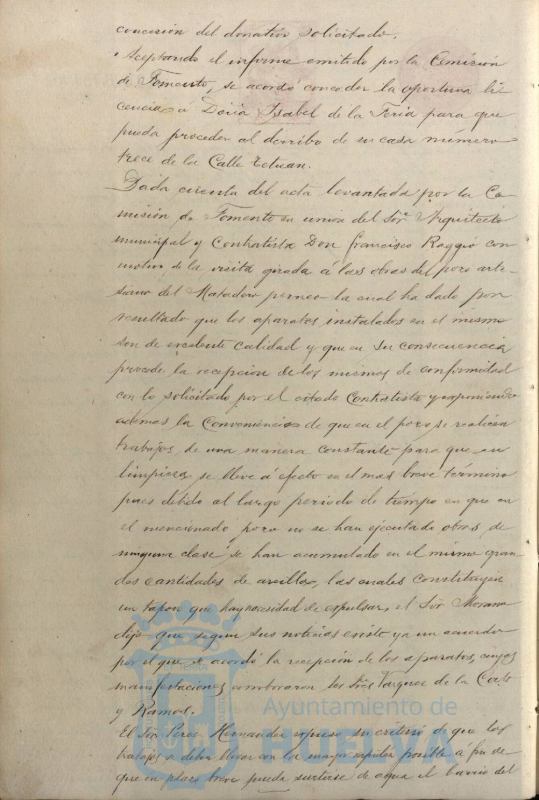 concesión del donativo solicitado.
Aceptando el informe emitido por la Comisión
de Fomento, se acordó conceder la oportuna li
cencia á Doña Isabel de la Feria para que
pueda proceder al derribo de su casa número
trece de la Calle Tetuan.
Dada cuenta del acta levantada por la Co
misión de Fomento en union del Sor. Arquitecto
municipal y Contratista Don Francisco Raggio con
motivo de la visita girada á las obras del pozo arte-
siano del Matadero, la cual ha dado por
resultado que los aparatos instalados en el mismo
son de excelente calidad y que en su consecuencia
procede la recepcion de los mismos de conformidad
con lo solicitado por el citado Contratista y exponiendo
ademas la conveniencia de que en el pozo se realicen
trabajos, de una manera constante para que su
limpieza, se lleve á efecto en el mas breve término
pues debido al largo periodo de tiempo en que en
el mencionado pozo no se han ejecutado obras de
ninguna clase se han acumulado en el mismo gran
des cantidades de arcillas, las cuales constituyen
un tapon que hay necesidad de expulsar, el Sor. Moreno
dijo que segun sus noticias existe ya un acuerdo
por el que se acordó la recepcion de los aparatos, cuyas
manifestaciones corroboraron los Sres. Vazquez de la Corte
y Ramos.
El Sor. Perez Hernandez expuso su criterio de que los
trabajos se deben llevar con la mayor rapidez posible a fin de
que en plazo breve pueda surtirse de agua el barrio del
Ayuntamiento de
HUELVA